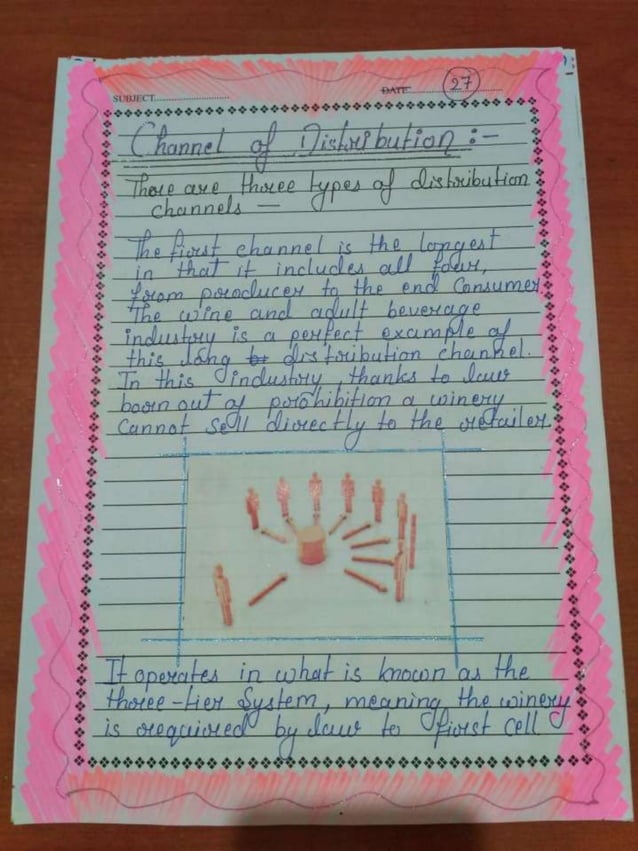 SUBJECT
DATE 27
Channel of Distribution :-
There are three types of distribution
channels —
The first channel is the longest
in that it includes all four,
from producer to the end Consumer
The wine and adult beverage
industry is a perfect example of
this long distribution channel.
In this industry thanks to law
born out of prohibition a winery
Cannot Sell directly to the retailer.
It operates in what is known as the
three-tier System, meaning the winery
is required by law to first Cell